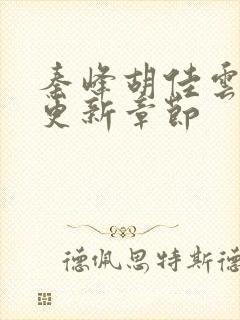 秦峰胡佳雲
更新章節
德佩思特斯德